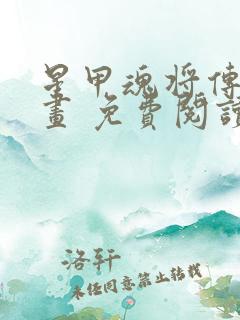 星甲魂将傳
畫 免費閱讀
洛轩
未经同意禁止转载